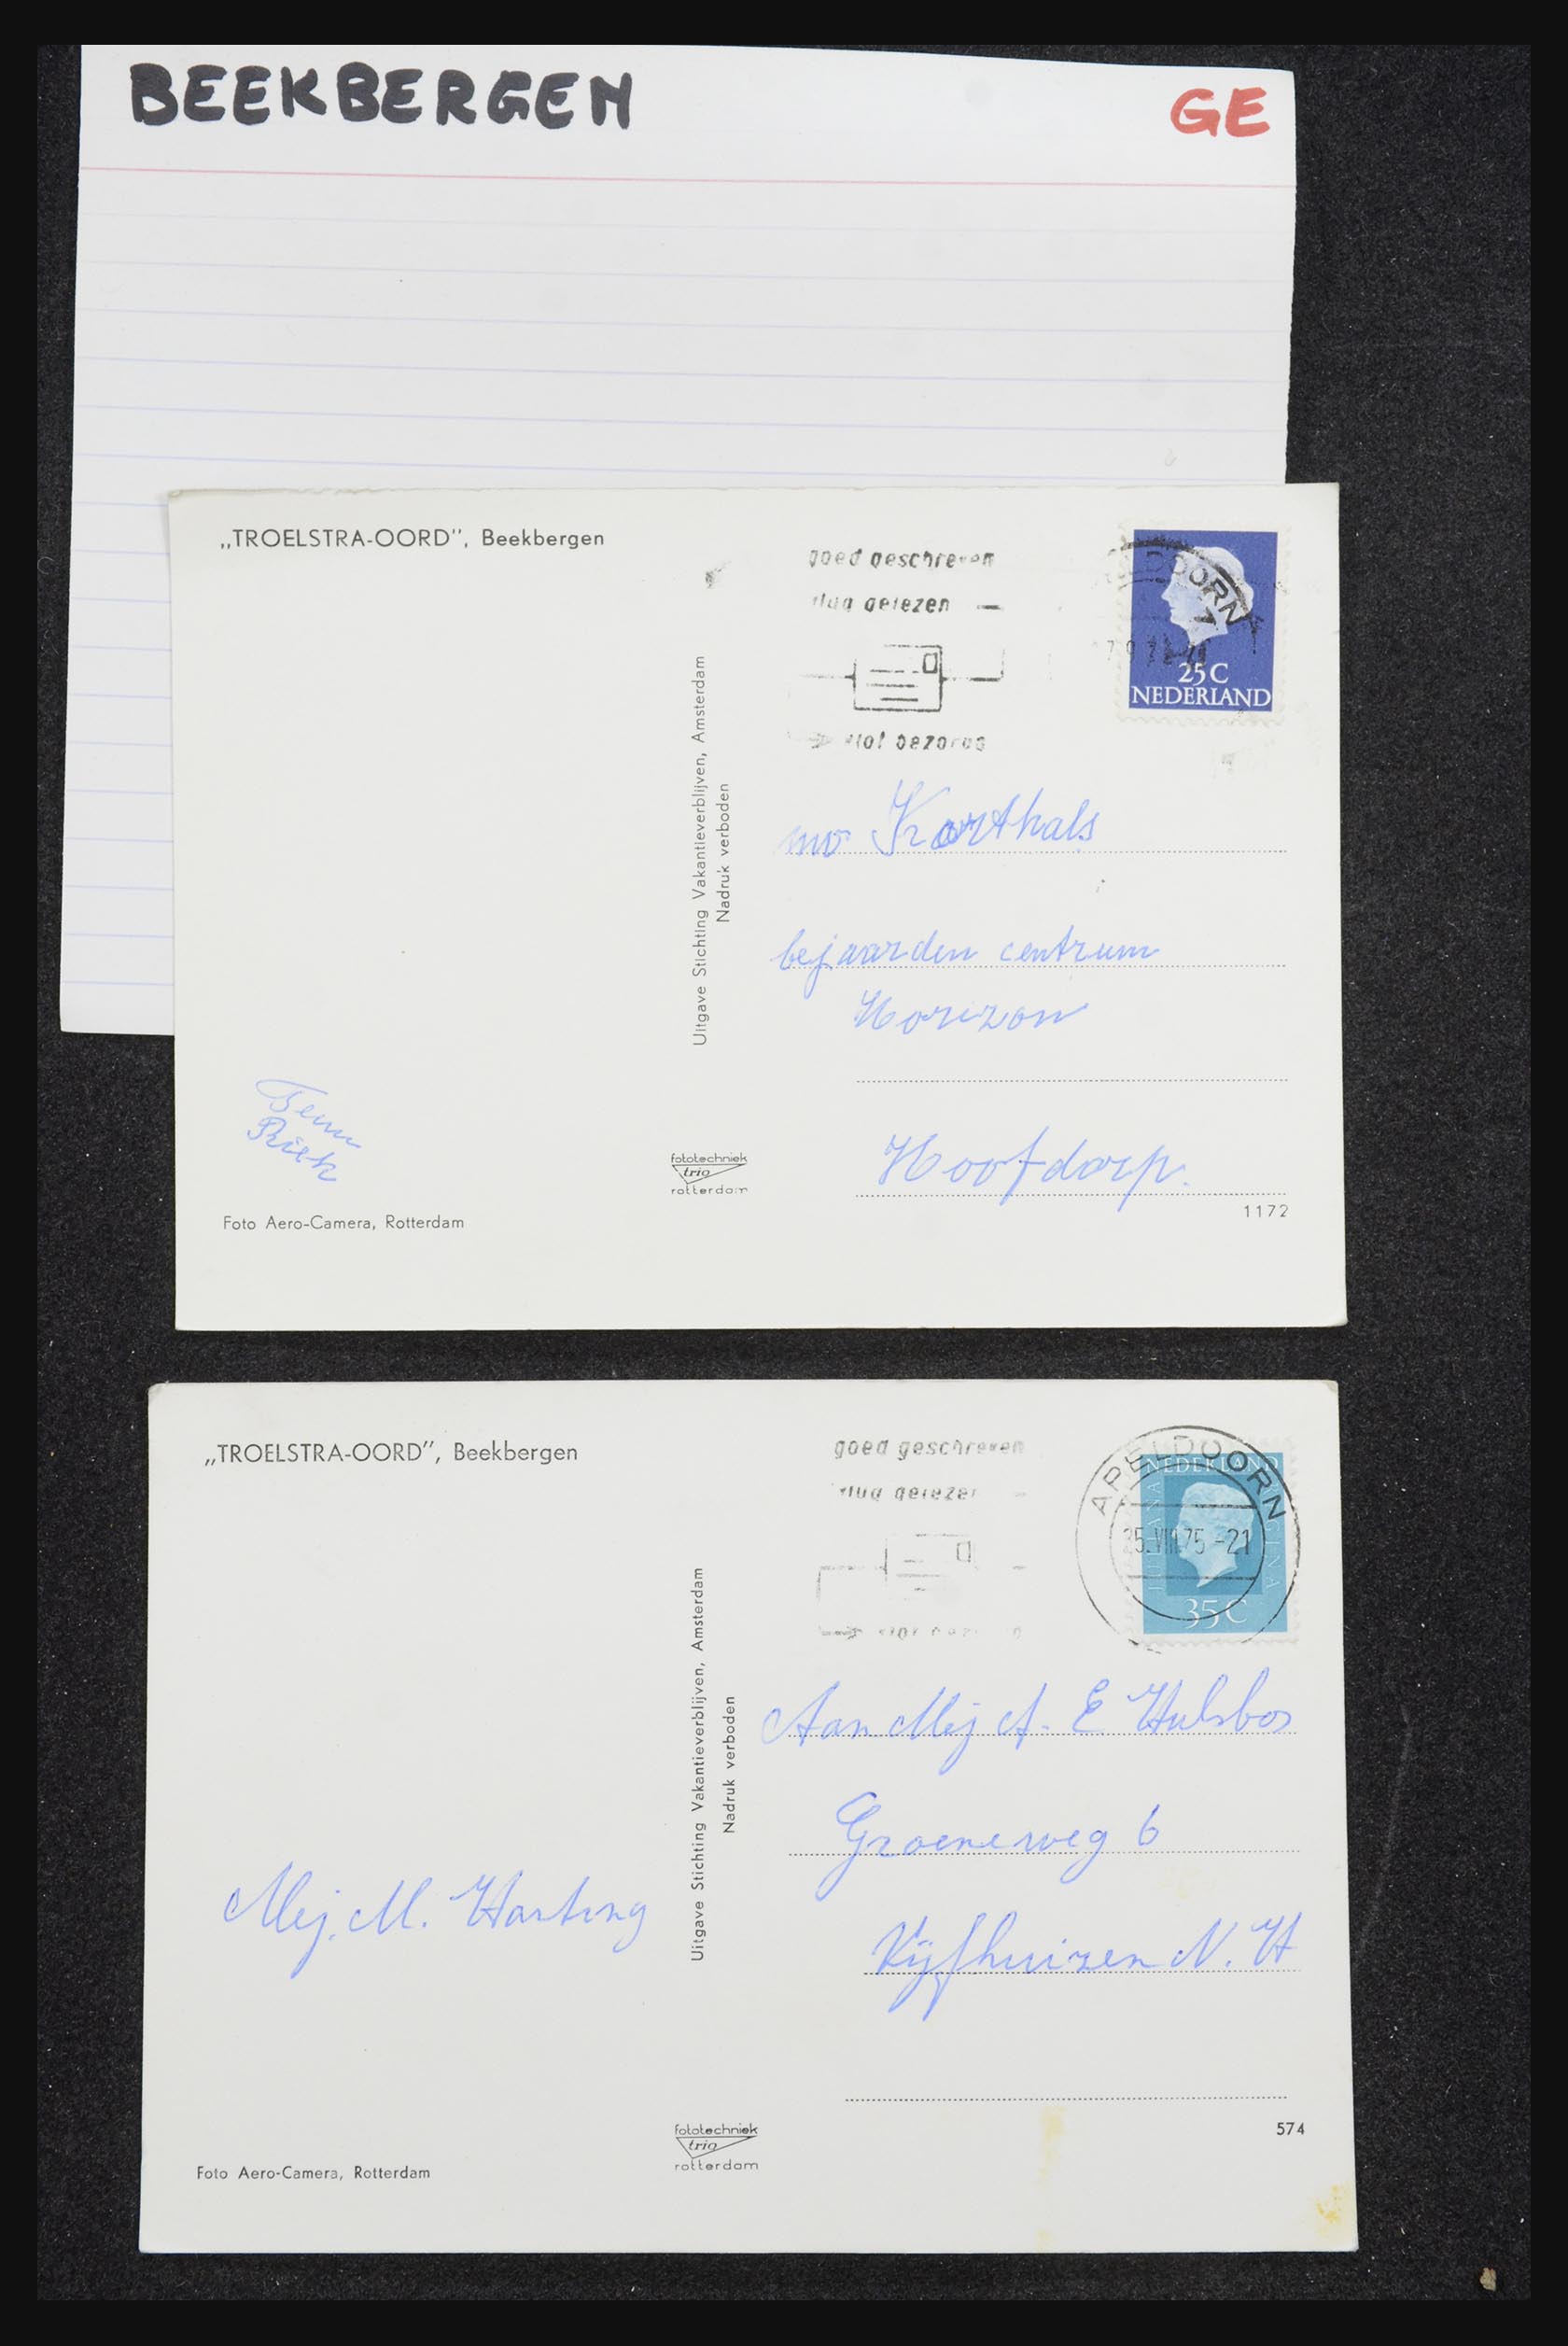 BEEKBERGEN
GE
„TROELSTRA-OORD”, Beekbergen
goed geschreven
vlug gelezen
vlot bezorgd
25 C
NEDERLAND
Uitgave Stichting Vakantieverblijven, Amsterdam
Nadruk verboden
mv Korthals
bejaarden centrum
Horizon
Hoofdorp.
Riek
fototechniek
trio
rotterdam
Foto Aero-Camera, Rotterdam
1172
„TROELSTRA-OORD”, Beekbergen
goed geschreven
vlug gelezen
APELDOORN
25.VIII.75 -21
NEDERLAND
JULIANA REGINA
35 C
Uitgave Stichting Vakantieverblijven, Amsterdam
Nadruk verboden
Aan Mej A. E Hulsbos
Groeneweg 6
Vijfhuizen N. H
Mej. M. Hartung
fototechniek
trio
rotterdam
Foto Aero-Camera, Rotterdam
574